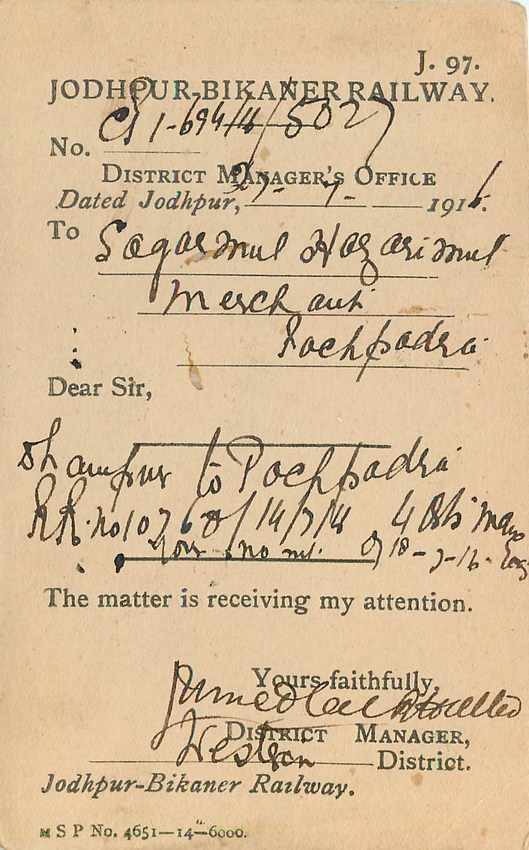 J. 97.
JODHPUR-BIKANER RAILWAY.
No. CS 1-694/4/5027
DISTRICT MANAGER'S OFFICE
Dated Jodhpur, 27-7- 1916.
To Sagarmul Hazarimul
Merchant
Pochpadra
Dear Sir,
to Pochpadra
R.R. no 1076 of 14/7/16 4
Your no of 18-7-16
The matter is receiving my attention.
Yours faithfully,
DISTRICT MANAGER,
Western District.
Jodhpur-Bikaner Railway.
M S P No. 4651—14—6000.